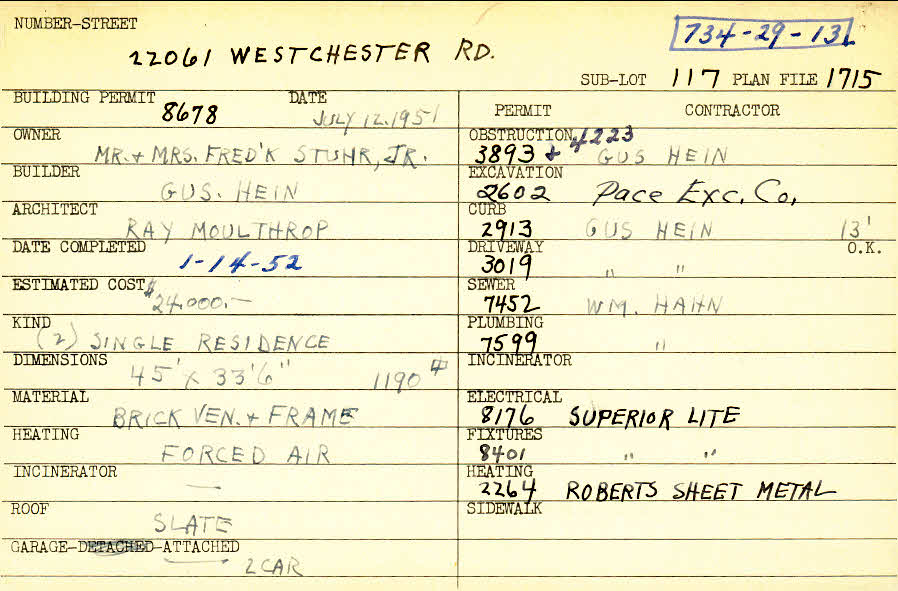 NUMBER-STREET
734-29-13
22061 WESTCHESTER RD.
SUB-LOT 117 PLAN FILE 1715
BUILDING PERMIT 8678 DATE JULY 12, 1951
OWNER MR. + MRS. FRED'K STUHR, JR.
BUILDER GUS. HEIN
ARCHITECT RAY MOULTHROP
DATE COMPLETED 1-14-52
ESTIMATED COST $24,000.—
KIND (2) SINGLE RESIDENCE
DIMENSIONS 45' x 33'6" 1190
MATERIAL BRICK VEN. + FRAME
HEATING FORCED AIR
INCINERATOR —
ROOF SLATE
GARAGE-DETACHED-ATTACHED
2 CAR
PERMIT CONTRACTOR
OBSTRUCTION 3893 + 4223 GUS HEIN
EXCAVATION 2602 Pace Exc. Co.
CURB 2913 GUS HEIN 13' O.K.
DRIVEWAY 3019 " "
SEWER 7452 WM. HAHN
PLUMBING 7599 "
INCINERATOR
ELECTRICAL 8176 SUPERIOR LITE
FIXTURES 8401 " "
HEATING 2264 ROBERTS SHEET METAL
SIDEWALK